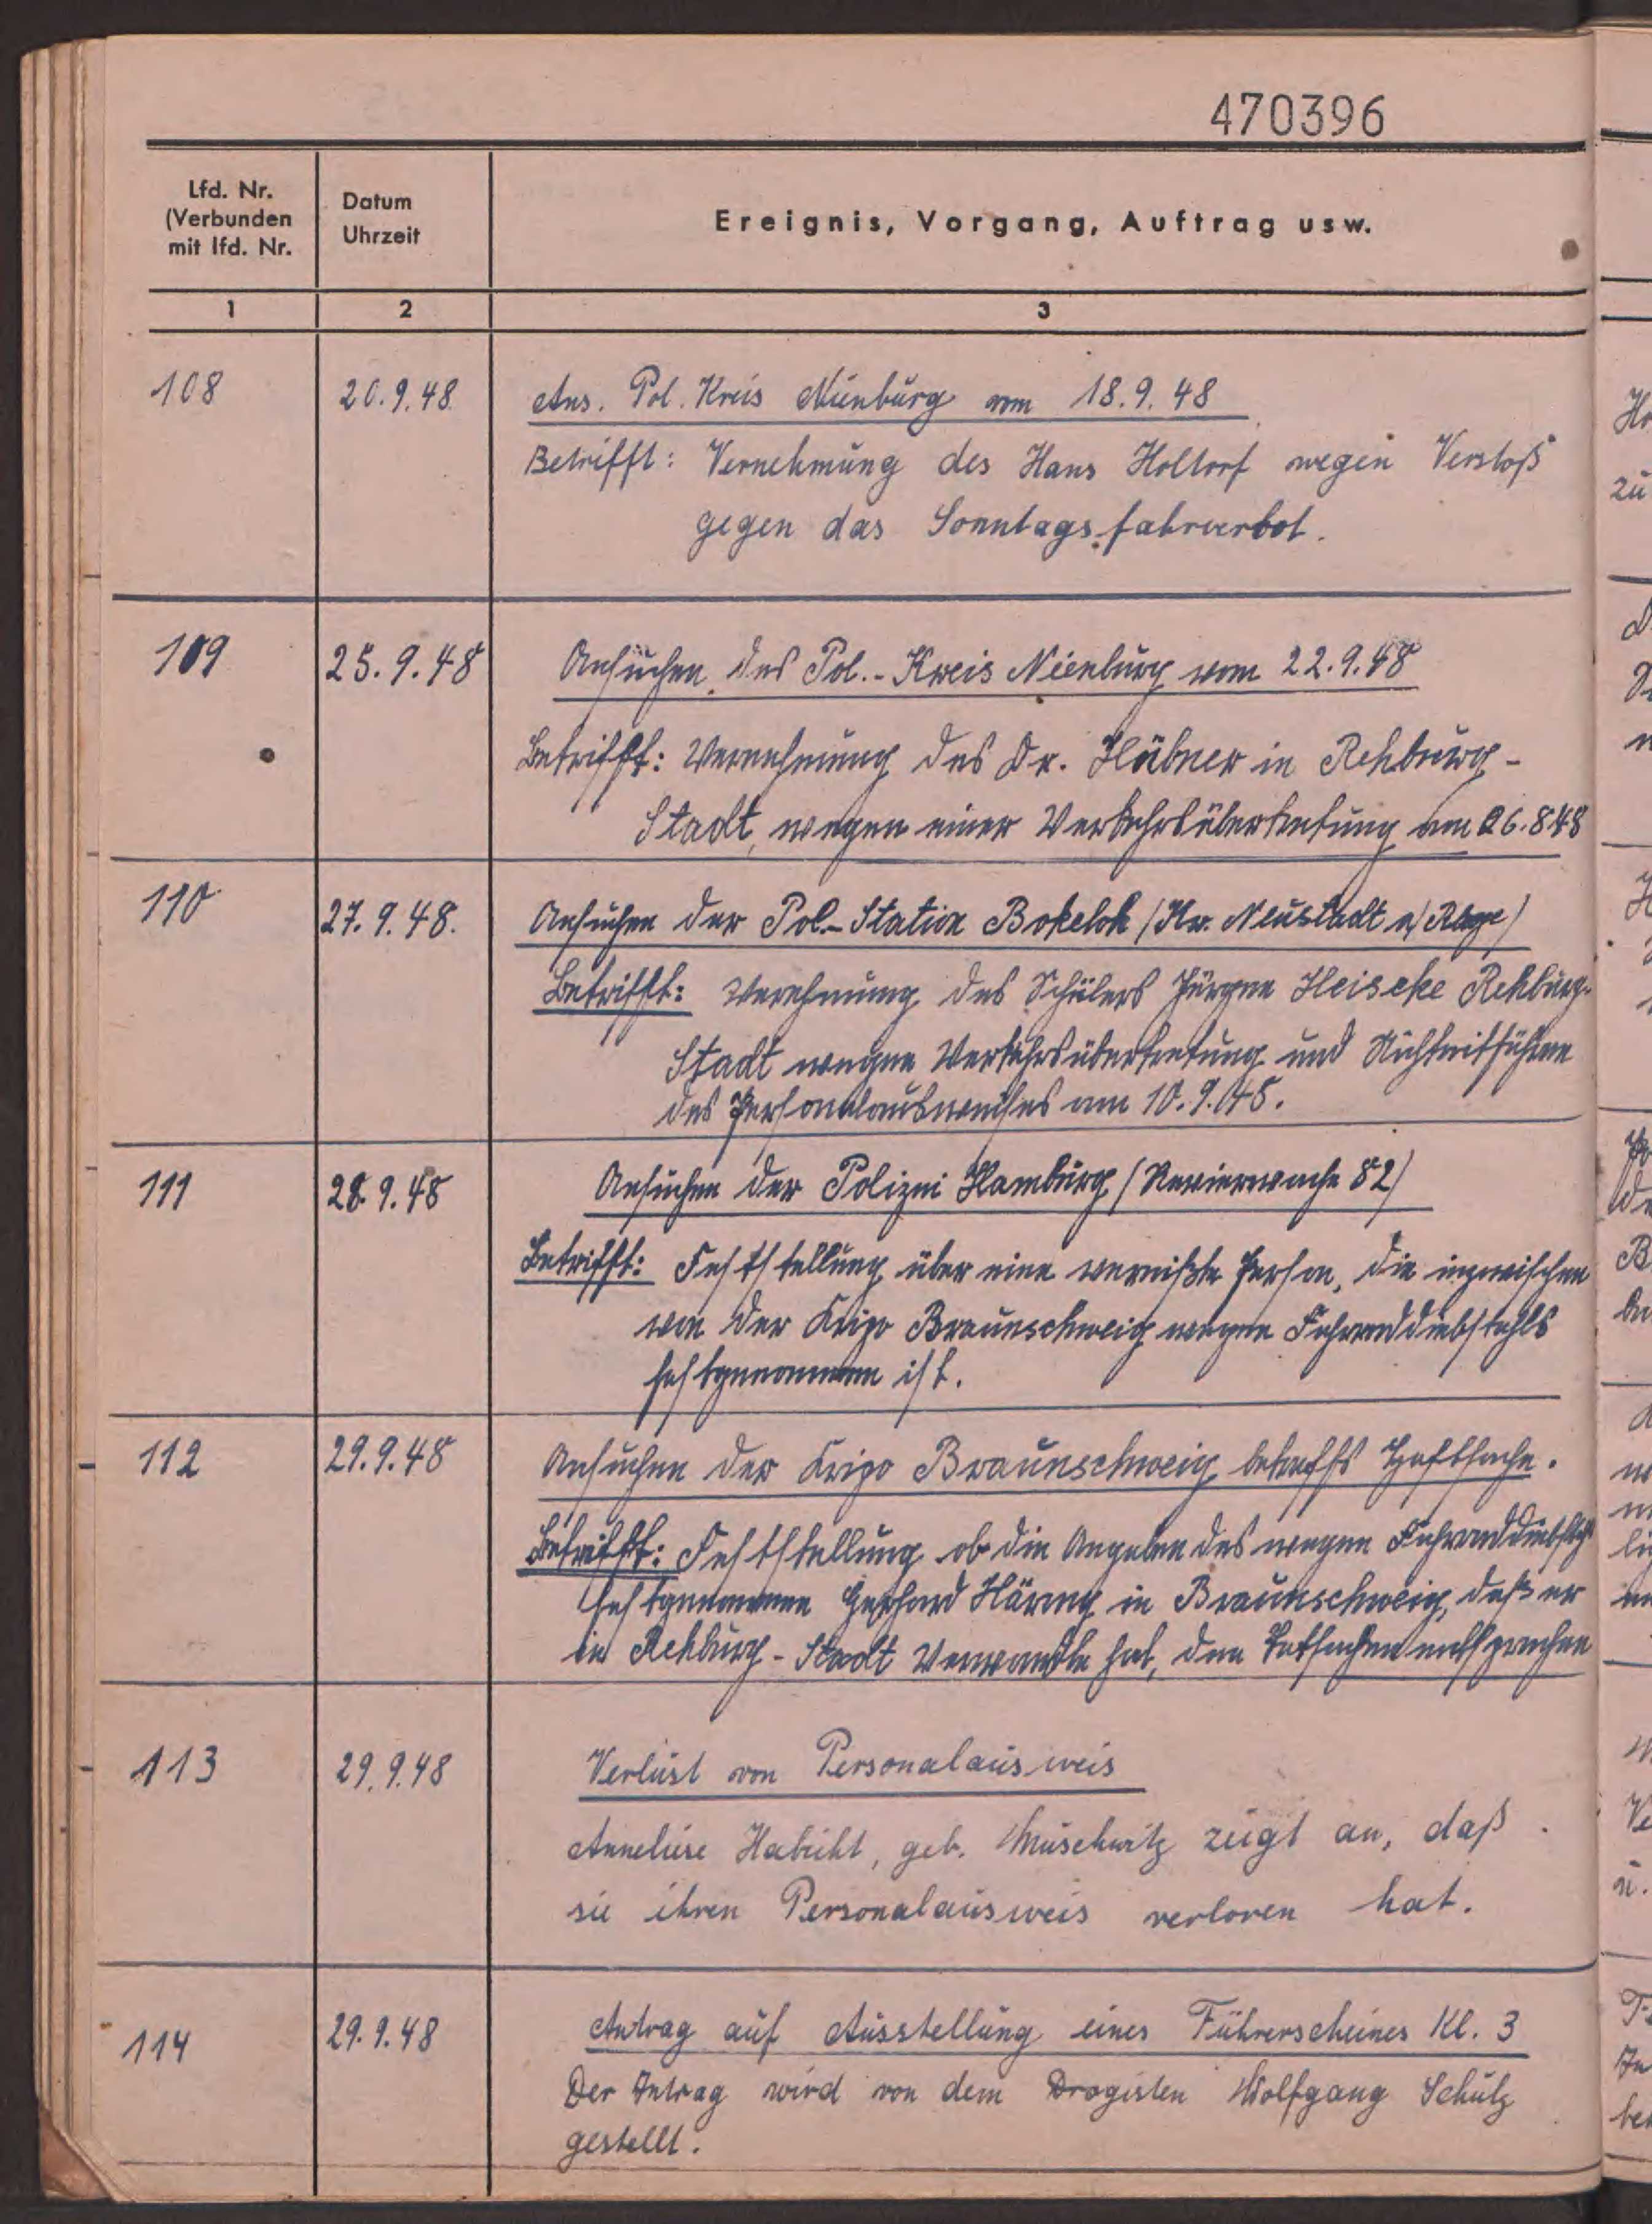 470396
Lfd. Nr.
(Verbunden
mit lfd. Nr.
Datum
Uhrzeit
Ereignis, Vorgang, Auftrag usw.
1 2 3
108 20.9.48 Ans. Pol. Kreis Nienburg vom 18.9.48
Betrifft: Vernehmung des Hans Holtorf wegen Verstoß
gegen das Sonntagsfahrverbot.
109 25.9.48 Ansuchen des Pol.-Kreis Nienburg vom 22.9.48
Betrifft: Vernehmung des Dr. Hübner in Rehburg-
Stadt, wegen einer Verkehrsübertretung am 26.8.48
110 27.9.48. Ansuchen der Pol.-Station Bokeloh (Kr. Neustadt a/Rbge)
Betrifft: Vernehmung des Schülers Jürgen Heiseke Rehburg-
Stadt wegen Verkehrsübertretung und Nichtmitführen
des Personalausweises am 10.9.48.
111 28.9.48 Ansuchen der Polizei Hamburg (Revierwache 82)
Betrifft: Feststellung über eine vermißte Person, die inzwischen
von der Kripo Braunschweig wegen Fahrraddiebstahls
festgenommen ist.
112 29.9.48 Ansuchen der Kripo Braunschweig betreffs Haftsache.
Betrifft: Feststellung ob die Angaben des wegen Fahrraddiebstahl
festgenommenen Gerhard Häring in Braunschweig, daß er
in Rehburg-Stadt Verwandte hat, den Tatsachen entsprechen
113 29.9.48 Verlust von Personalausweis
Anneliese Habicht, geb. Muschwitz zeigt an, daß
sie ihren Personalausweis verloren hat.
114 29.9.48 Antrag auf Ausstellung eines Führerscheines Kl. 3
Der Antrag wird von dem Drogisten Wolfgang Schulz
gestellt.